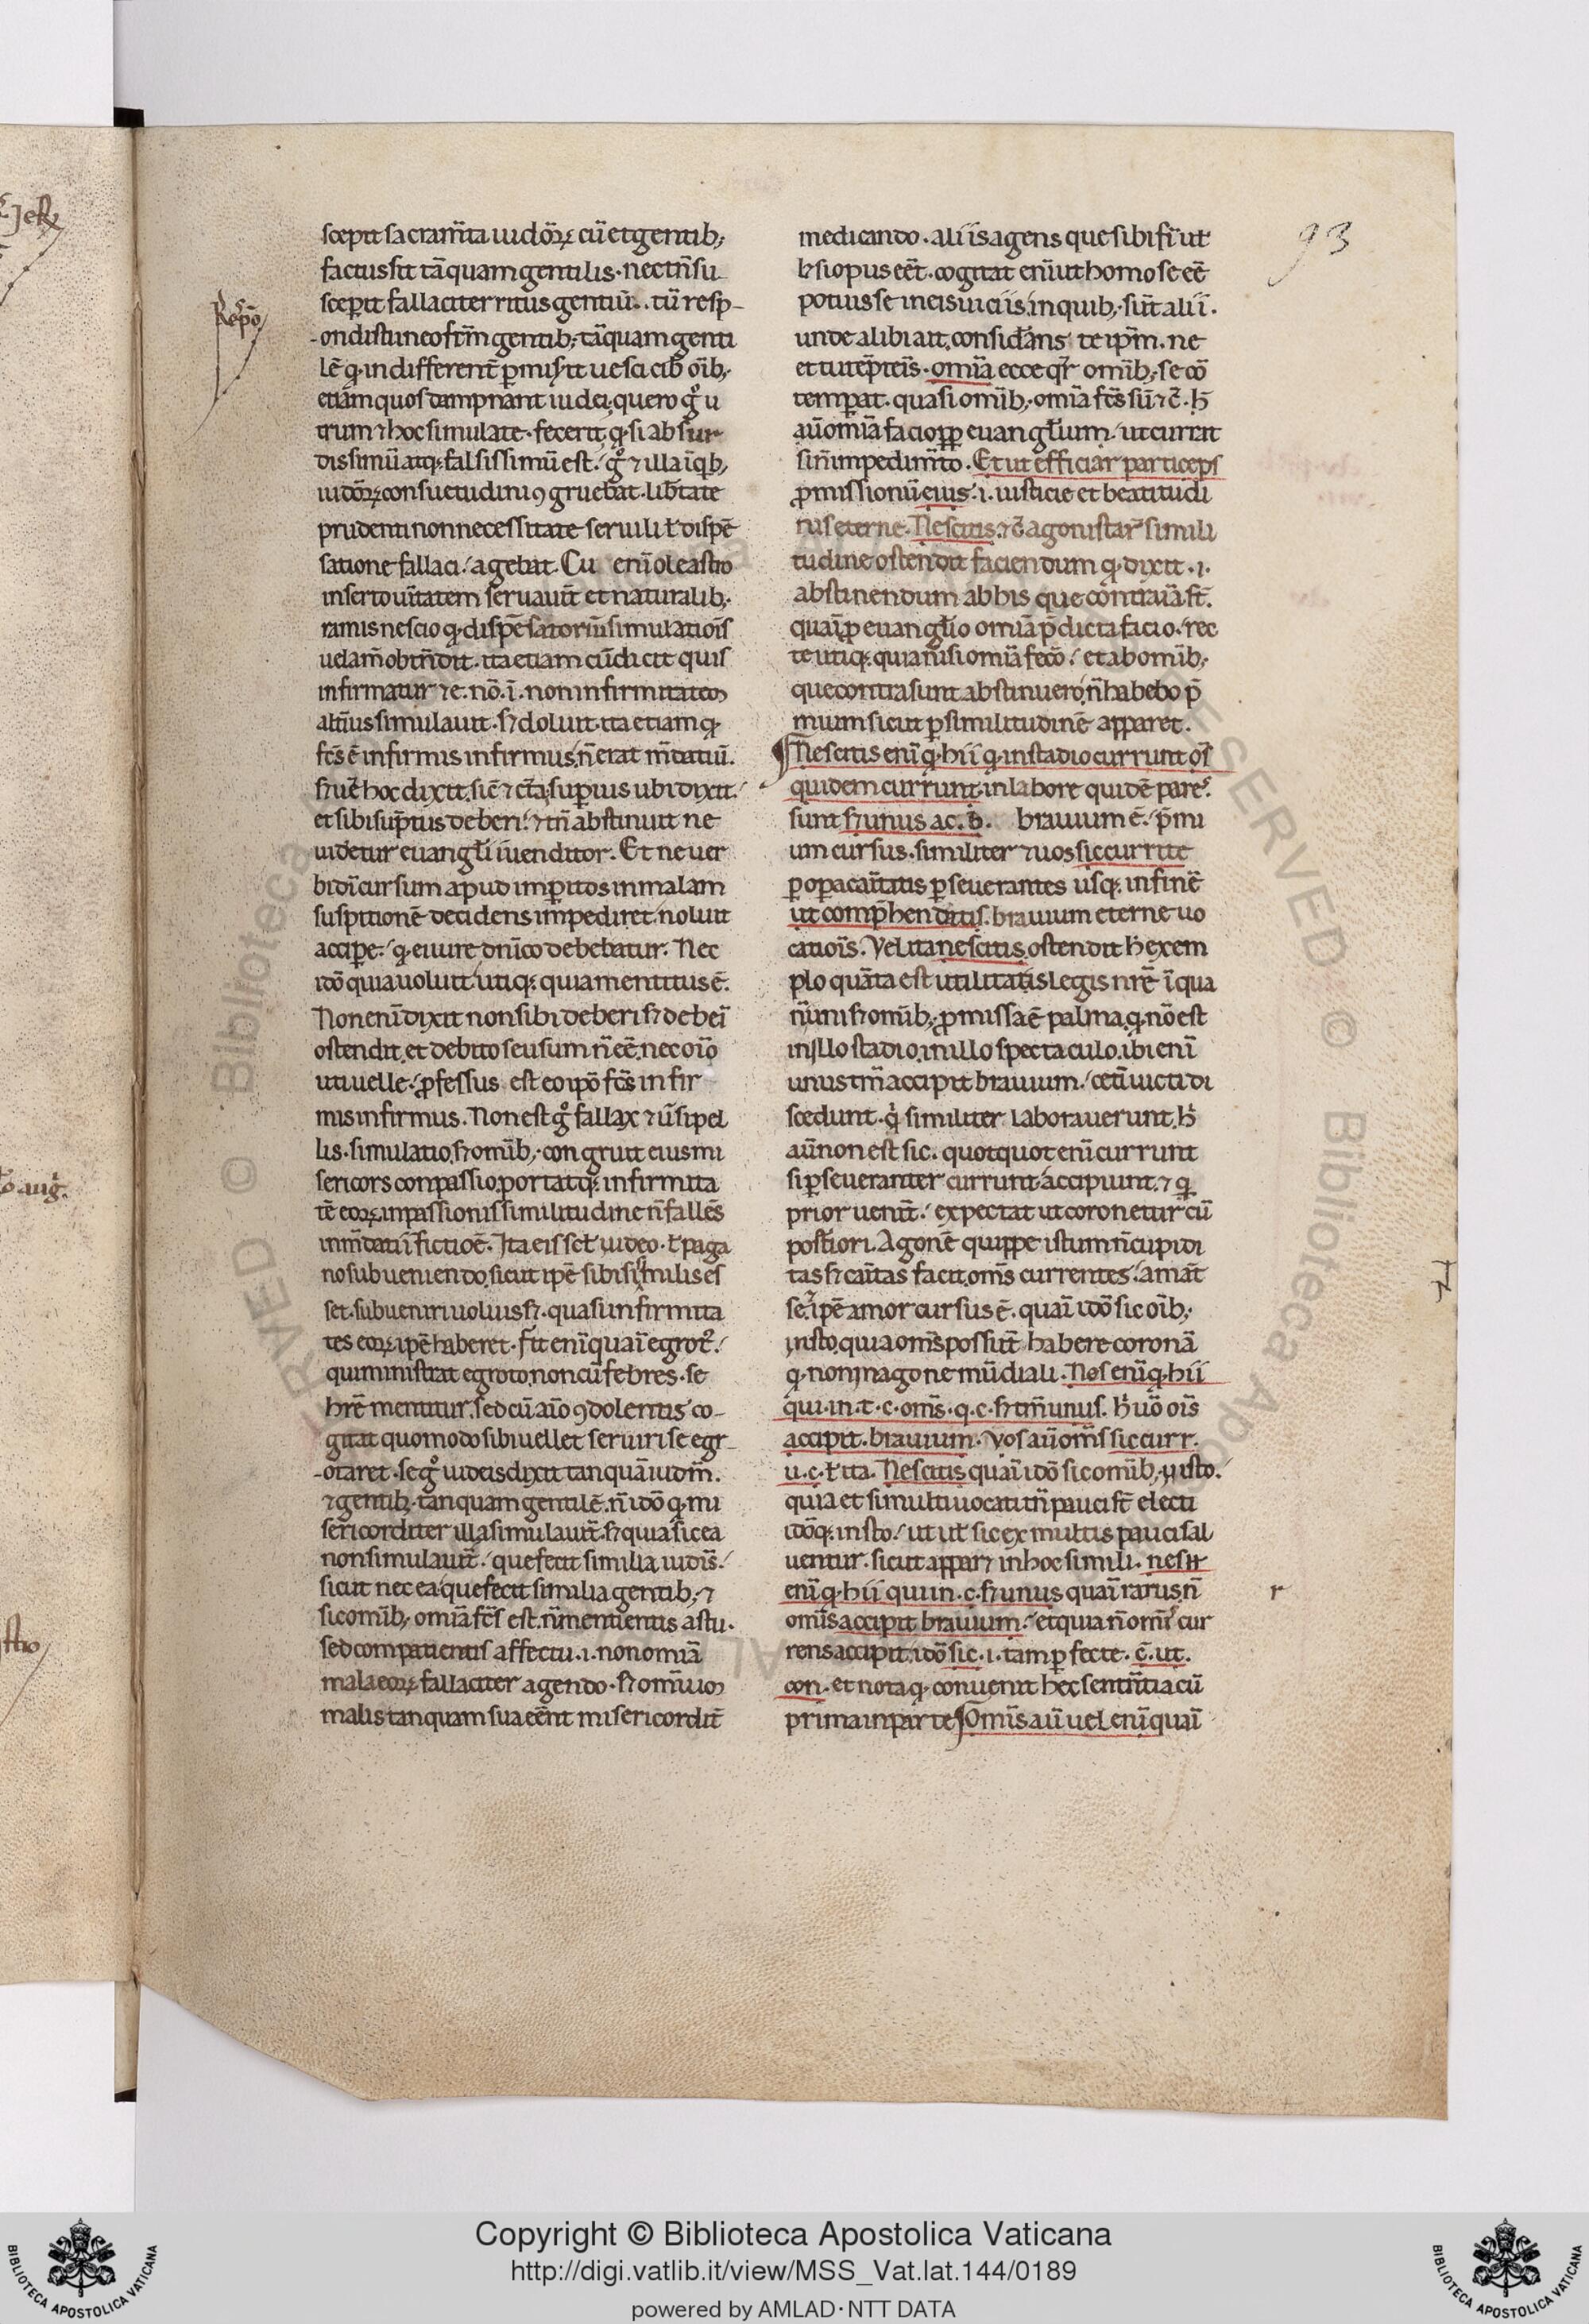 93
scepit sacram̄ta iudöꝝ cū et gentib;
factus sit tāquam gentilis. nec tn̄ su
scepit fallaciter ritus gentiū. tu resp-
Respō
-ondisti in eo fc̄m gentib; tāquam genti
lē ꝙ indifferent̄ ꝑmisit uesci cib oīb;
etiam quos dampnant iudei. quero gͦ u
trum ⁊ hoc simulate fecerit. ꝙ si absur
dissimū atqꝫ falsissimū est. gͦ ⁊ illa ī qb;
iudöꝝ consuetudini ꝯgruebat. lib̄tate
prudenti non necessitate seruili ł dispē
satione fallaci agebat. Cu enī oleastro
inserto uītatem seruauit et naturalib;
ramis nescio ꝙ dispēsatoriū simulatiōis
uelam̄ obtn̄dit. ita etiam cū dicit quis
infirmatur ⁊ e. nō. ī. non infirmitatem
alt̄ius simulauit. sꝫ doluit. ita etiam ꝙ
fc̄s ē infirmis infirmus. n̄ erat m̄datiū.
sꝫ uē hoc dixit. sic̄ ⁊ cēa superius ubi dixit.
et sibi sūptus deberi. ⁊ tn̄ abstinuit ne
uidetur euangl̄ii uenditor. Et ne uer
bi dī cursum apud imperitos in malam
suspitionē decidens impediret. noluit
accipe. ꝙ ei iure dn̄ico debebatur. Nec
idō quia uoluit utiqꝫ quia mentitus ē.
Non enī dixit non sibi deberi sꝫ deberi
ostendit. et debito se usum n̄ eē. nec oīo
uti uelle. ꝓfessus est eo ip̄o fc̄s infir
mis infirmus. Non est gͦ fallax ⁊ uersipel
lis simulatio. sꝫ omīb; congruit eius mi
sericors compassio. portatqꝫ infirmita
tē eoꝝ in passionis similitudine n̄ fallēs
in m̄datii fictiōe. Ita ei esset iudeo ł paga
no subueniendo. sicut ip̄e sibi si similis es
set subueniri uoluisꝫ. quasi infirmita
tes eoꝝ ip̄e haberet. Fit enī quaī egrot᷑.
qui ministrat egroto. non cū febres se
hr̄e mentitur. sed cū aīo ꝯdolentis co-
gitat quomodo sibi uellet seruiri si egr-
-otaret. se gͦ iudeis dixit tanquā iudm̄.
⁊ gentib; tanquam gentilē. n̄ idō ꝙ mi
sericorditer illa simulaūit. sꝫ quia sic ea
non simulaūit. que fecit similia iudīs.
sicut nec ea que fecit similia gentib; ⁊
sic omīb; omīa fc̄s est. n̄ mentientis astu.
sed compatientis affectu. i. non omīa
mala eoꝝ fallaciter agendo. sꝫ omīum
malis tanquam sua eēnt misericordit̄
medicando. aliis agens que sibi fi ut
ł si opus eēt. cogitat enī ut homo se eē
potuisse in eis uiciis. in quib; sūt alii.
unde alibi ait. considerans te ip̄m. ne
et tu tēpteris. omīa ecce qr̄ omīb; se cō
temperat. quasi omīb; omīa fc̄s sū ⁊ c̄. h̄
aū omīa facio ꝓp euangl̄ium. ut currat
sin̄ impedim̄to. Et ut efficiar particeps
ꝓmissionū eius. i. iusticie et beatitudi
nis eterne. Nescitis. ⁊ c̄ agonistar simili
tudine ostendit faciendum ꝙ dixit. i.
abstinendum ab his que contraīa st̄.
quaī ꝓ euangl̄io omīa p̄dicta facio. rec
te utiqꝫ. quia nisi omīa fecō. et ab omīb;
que contra sunt abstinuero. n̄ habebo p̄
mium sicut ꝑ similitudinē apparet.
¶ Nescitis enī ꝙ hii ꝙ in stadio currunt oīs
quidem currunt. in labore quidē pares
sunt sꝫ unus ac. b. brauium ē. p̄mi
um cursus. similiter ⁊ uos sic currite
ꝑ opa caītatis ꝑseuerantes usqꝫ in finē
ut comp̄hendatis. brauium eterne uo
catiōis. Vel ita nescitis. ostendit h̄ exem
plo quāta est utilitatis legis nr̄e ī qua
n̄ uni sꝫ omīb; ꝓmissa ē palma. ꝙ nō est
in illo stadio. in illo spectaculo. ibi enī
unus tm̄ accipit brauium. cetī uicti di
scedunt. qͥ similiter laborauerunt. h̄
aū non est sic. quotquot enī currunt
si ꝑseueranter currunt accipiunt. ⁊ ꝙ
prior uenit. expectat ut coronetur cū
posteriori. Agonē quippe istum n̄ cupidi
tas sꝫ caītas facit. omīs currentes amāt
se. ip̄e amor cursus ē. quaī idō sic oīb;
insto. quia omīs possūt habere coronā
ꝙ non in agone mūdiali. Nos enī ꝙ hii
qui. in. t. c. omīs. q. c. sꝫ tm̄ unus. h̄ uō oīs
accipit. brauium. Vos aū omīs sic curr.
u. c. ł ita. Nescitis quaī idō sic omīb; insto.
quia et si multi uocati n̄ pauci st̄ electi
idōqꝫ insto. ut ut sic ex multis pauci sal
uentur. sicut apparꝫ in hoc simili. nescit
enī ꝙ hii qui in. c. sꝫ unus quaī rarus. n̄
r
omīs accipit brauium. et quia n̄ omīs cur
rens accipit. idō sic. i. tam perfecte. c̄. ut.
con. et nota ꝙ conuenit hec sentn̄tia cū
prima in parte ¶ Omīs aū uel enī quaī
Copyright © Biblioteca Apostolica Vaticana
http://digi.vatlib.it/view/MSS_Vat.lat.144/0189
powered by AMLAD·NTT DATA
BIBLIOTECA APOSTOLICA VATICANA
BIBLIOTECA APOSTOLICA VATICANA